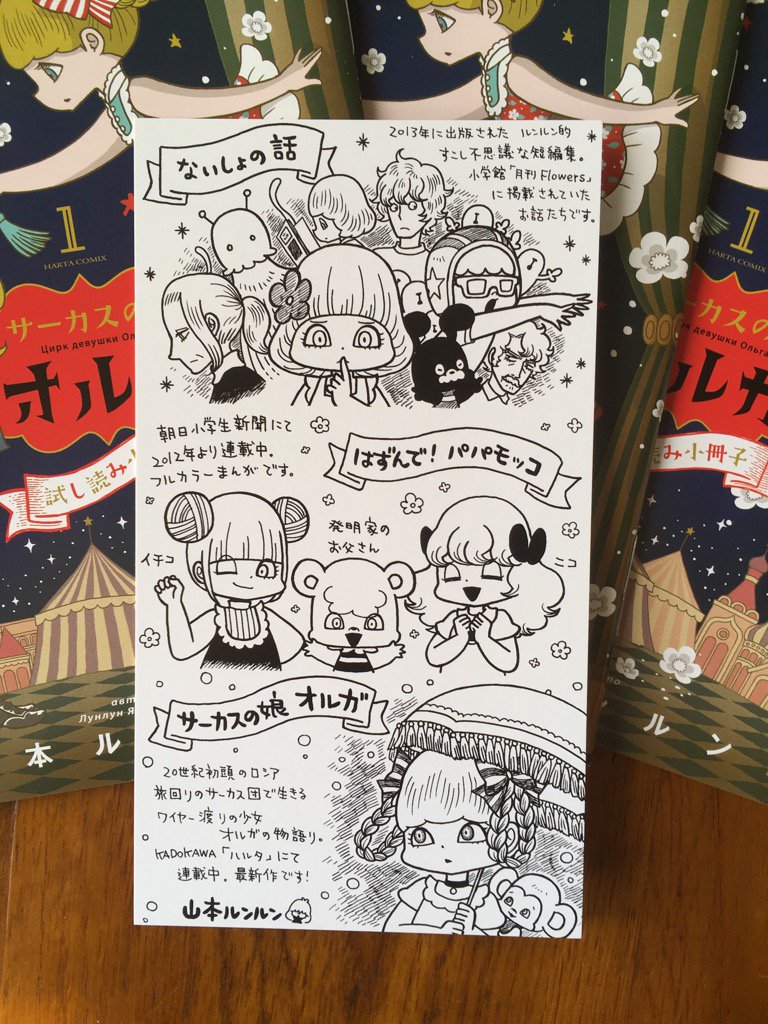 ないしょの話
2013年に出版された ルンルン的
すこし不思議な短編集。
小学館「月刊Flowers」
に掲載されていた
お話たちです。
朝日小学生新聞にて
2012年より連載中。
フルカラーまんがです。
はずんで！パパモッコ
イチコ
発明家の
お父さん
ニコ
サーカスの娘 オルガ
20世紀初頭のロシア
旅回りのサーカス団で生きる
ワイヤー渡りの少女
オルガの物語り。
KADOKAWA「ハルタ」にて
連載中。最新作です！
山本ルンルン
1
HARTA COMIX
サーカスの
Цирк девушки Ольга
オル
試し読み小
авт
Лунлун Я
本ル
1
HARTA COMIX
ーカスの
Цирк девушки
ルガ
読み小冊子
ルン